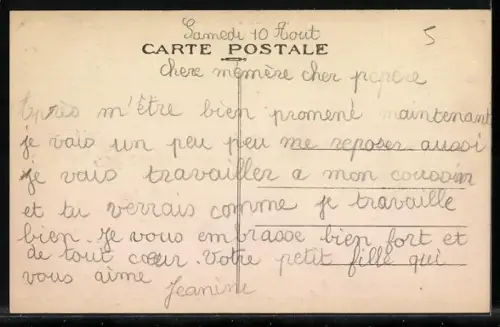 Samedi 10 Aout
5
CARTE POSTALE
chere mémère cher pepere
Après m'être bien promené maintenant
je vais un peu peu me reposer aussi
je vais travailler a mon coussin
et tu verrais comme je travaille
bien. Je vous embrasse bien fort et
de tout cœur. Votre petit fille qui
vous aime Jeanine